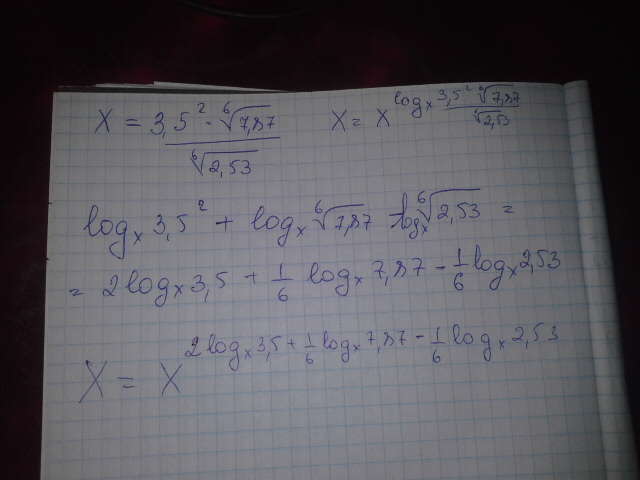 X = 3,5² · ⁶√7,87 / ⁶√2,53
X = X^(log_x 3,5² · ⁶√7,87 / ⁶√2,53)
log_x 3,5² + log_x ⁶√7,87 - log_x ⁶√2,53 =
= 2 log_x 3,5 + 1/6 log_x 7,87 - 1/6 log_x 2,53
X = X^(2 log_x 3,5 + 1/6 log_x 7,87 - 1/6 log_x 2,53)